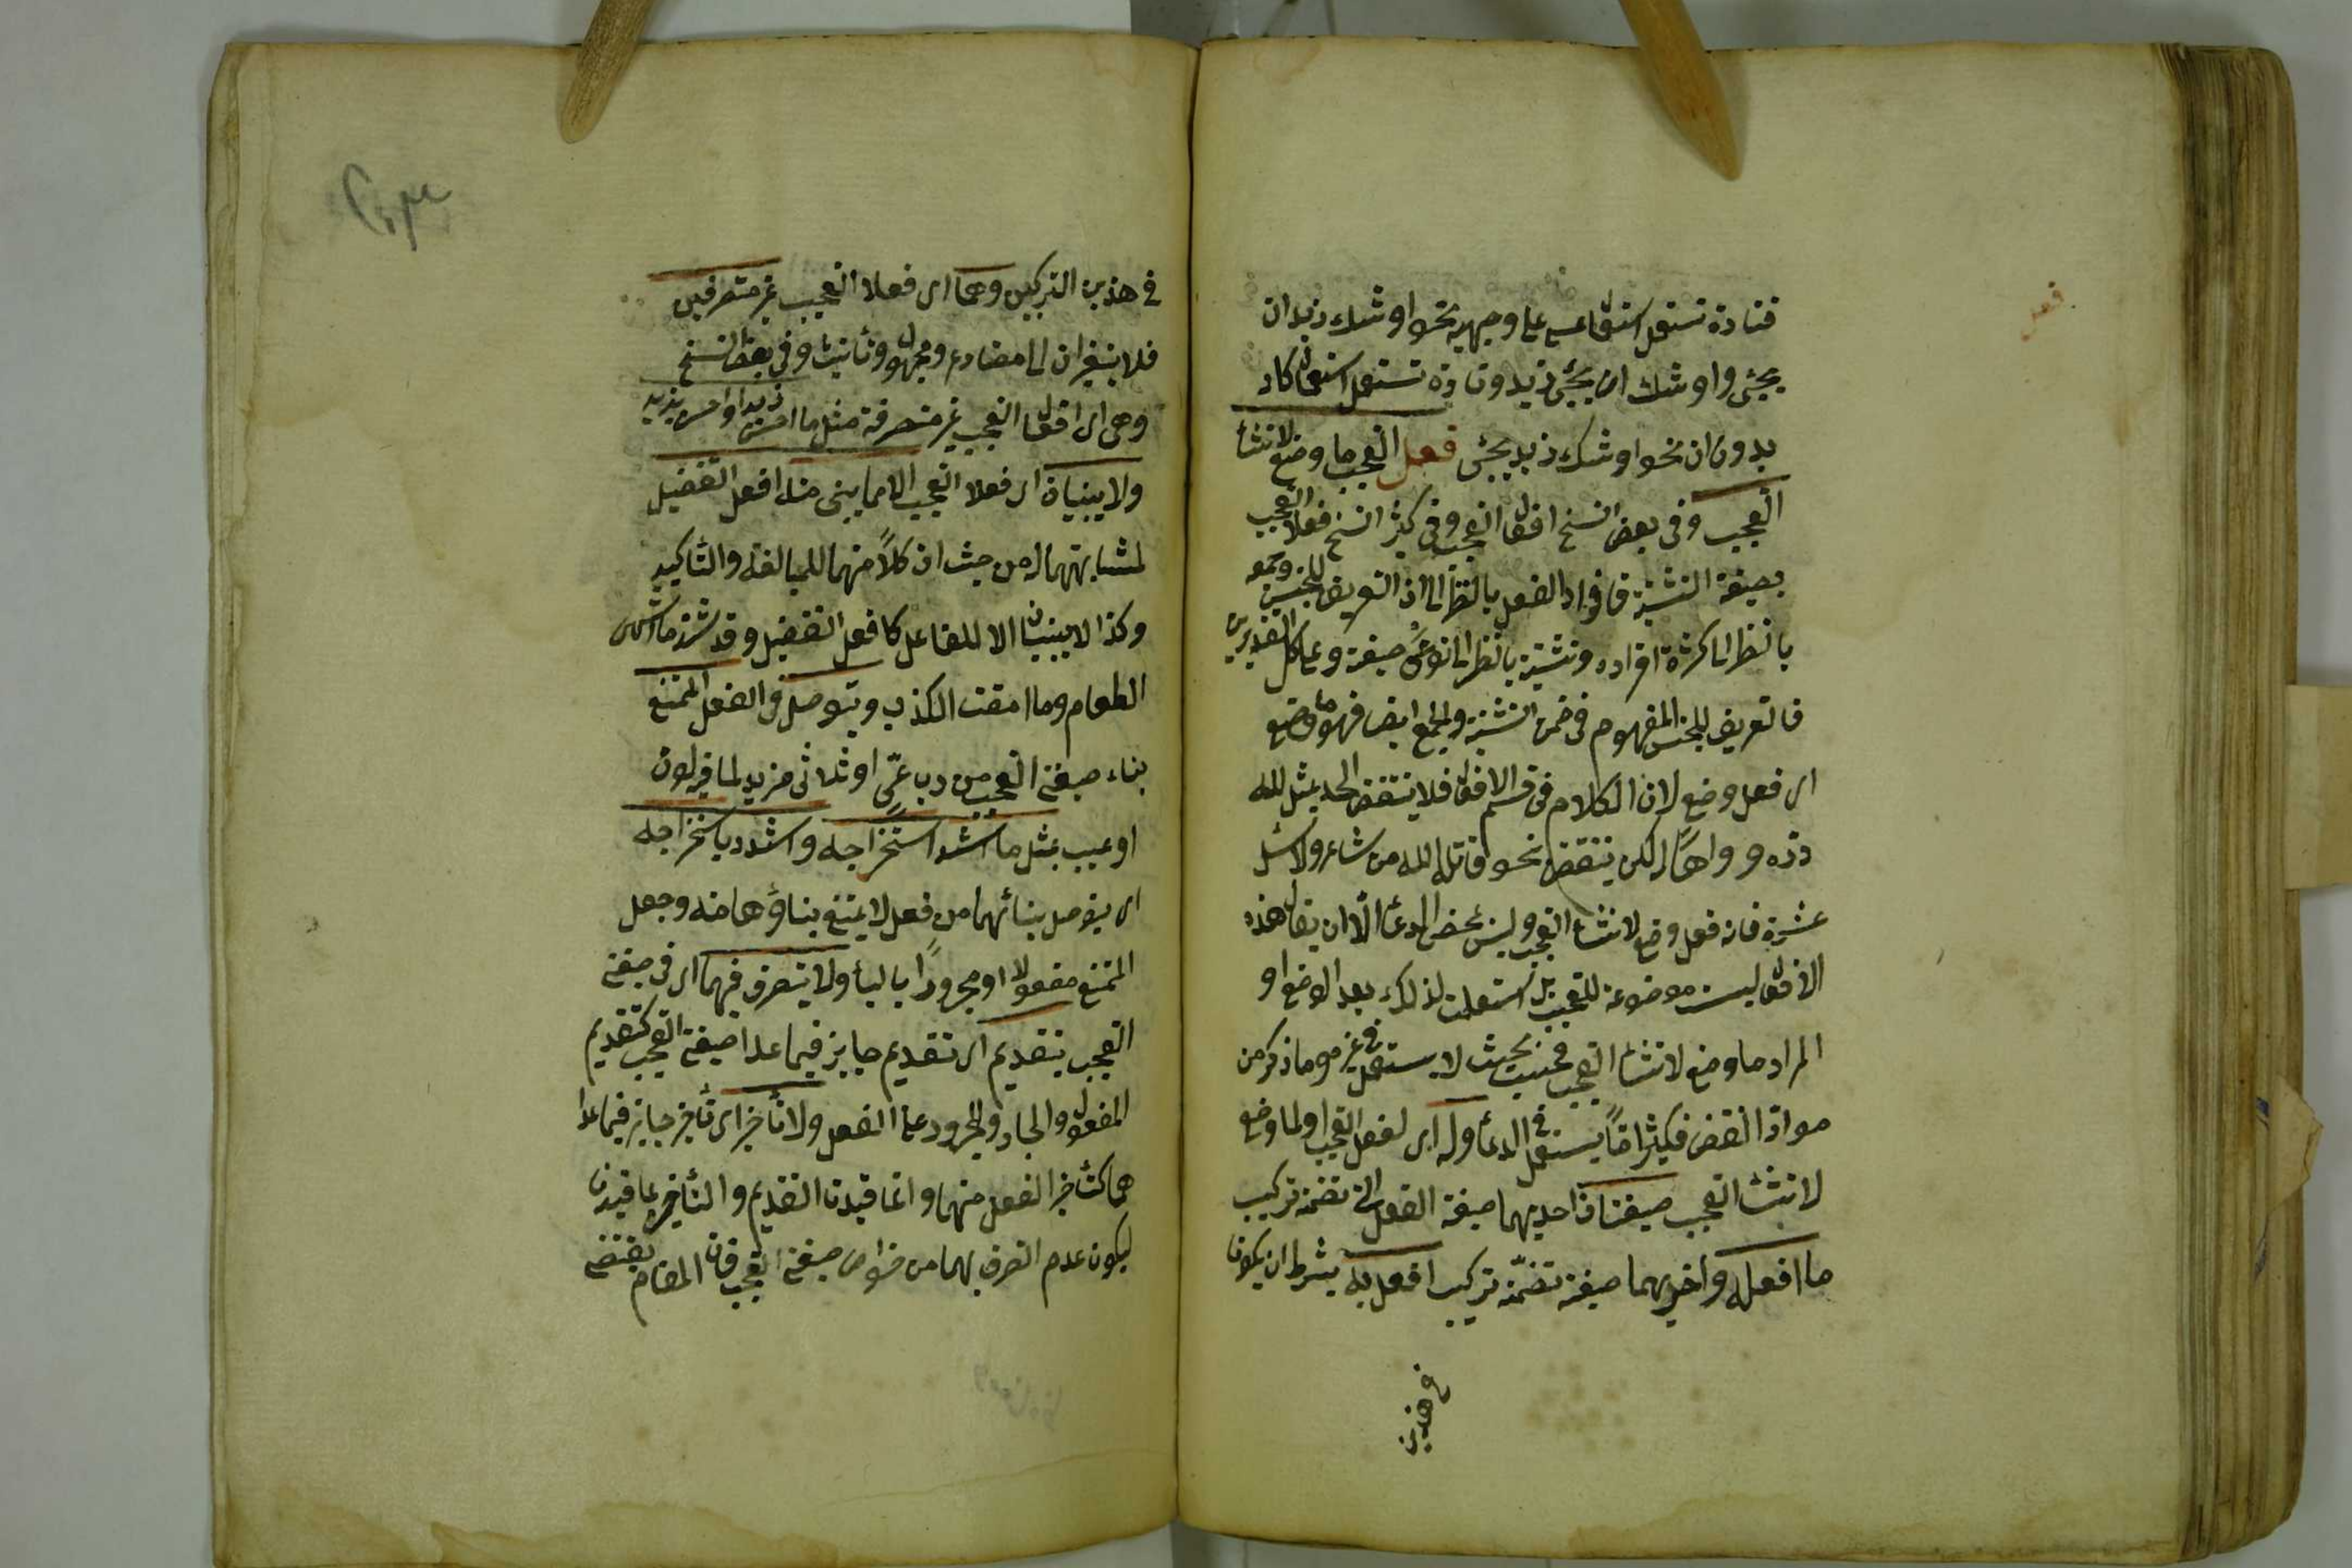 فعل
فتارة تستعمل استعمال عسى على وجهيه نحو اوشك زيد ان
يجئ واوشك ان يجئ زيد وتارة تستعمل استعمال كاد
بدون ان نحو اوشك زيد يجئ فعل التعجب ما وضع لانشاء
التعجب وفي بعض النسخ افعال التعجب وفي كثر النسخ فعلا التعجب
بصيغة التثنية فافراد الفعل بالنظر الى ان التعريف للجنس وجمعه
بالنظر الى كثرة افراده وتثنيته بالنظر الى نوعى صيغة وعلى كل التقديرين
فالتعريف للجنس المفهوم في ضمن التثنية والجمع ايضا فهو ما وضع
اى فعل وضع لان الكلام في قسم الافعال فلا ينتقض الحد بمثل لله
دره وواها له لكن ينتقض نحو قاتله الله من شاعر ولا شل
عشرة فانه فعل وضع لانشاء التعجب وليس بمحض الدعاء الا ان يقال هذه
الافعال ليست موضوعة للتعجب بل استعملت لذلك بعد الوضع او
المراد ما وضع لانشاء التعجب فحسب بحيث لا يستعمل في غيره وما ذكر من
مواد النقض فكثيرا ما يستعمل في الدعاء وله اى لفعل التعجب او لما وضع
لانشاء التعجب صيغتان احديهما صيغة الفعل التى تضمنه تركيب
ما افعله واخريهما صيغة تضمنه تركيب افعل به بشرط ان يكونا
في هذين
في هذين التركيبين وهما اى فعلا التعجب غير متصرفين
فلا يتغيران الى مضارع ومجهول وتأنيث وفي بعض النسخ
وهى اى افعال التعجب غير متصرفة مثل ما احسن زيدا واحسن بزيد
ولا يبنيان اى فعلا التعجب الا مما يبنى منه افعل التفضيل
لمشابهتهما له من حيث ان كلا منهما للمبالغة والتأكيد
وكذا لا يبنيان الا للفاعل كافعل التفضيل وقد شذ ما اشهى
الطعام وما امقت الكذب ويتوصل في الفعل الممتنع
بناء صيغتى التعجب من رباعى او ثلاثى مزيد لما فيه لون
او عيب بمثل ما اشد استخراجه واشدد باستخراجه
اى يتوصل ببنائهما من فعل لا يمتنع بناؤهما منه وجعل
الممتنع مفعولا او مجرورا بالباء ولا يتصرف فيهما اى في صيغتى
التعجب بتقديم اى تقديم جايز فيما عدا صيغتى التعجب كتقديم
المفعول والجار والمجرور على الفعل ولا تأخير اى تأخير جايز فيما عدا
هما كتأخير الفعل منهما وانما قيدنا التقديم والتأخير بما قيدنا
ليكون عدم التصرف بهما من خواص صيغتى التعجب فان المقام يقتضى